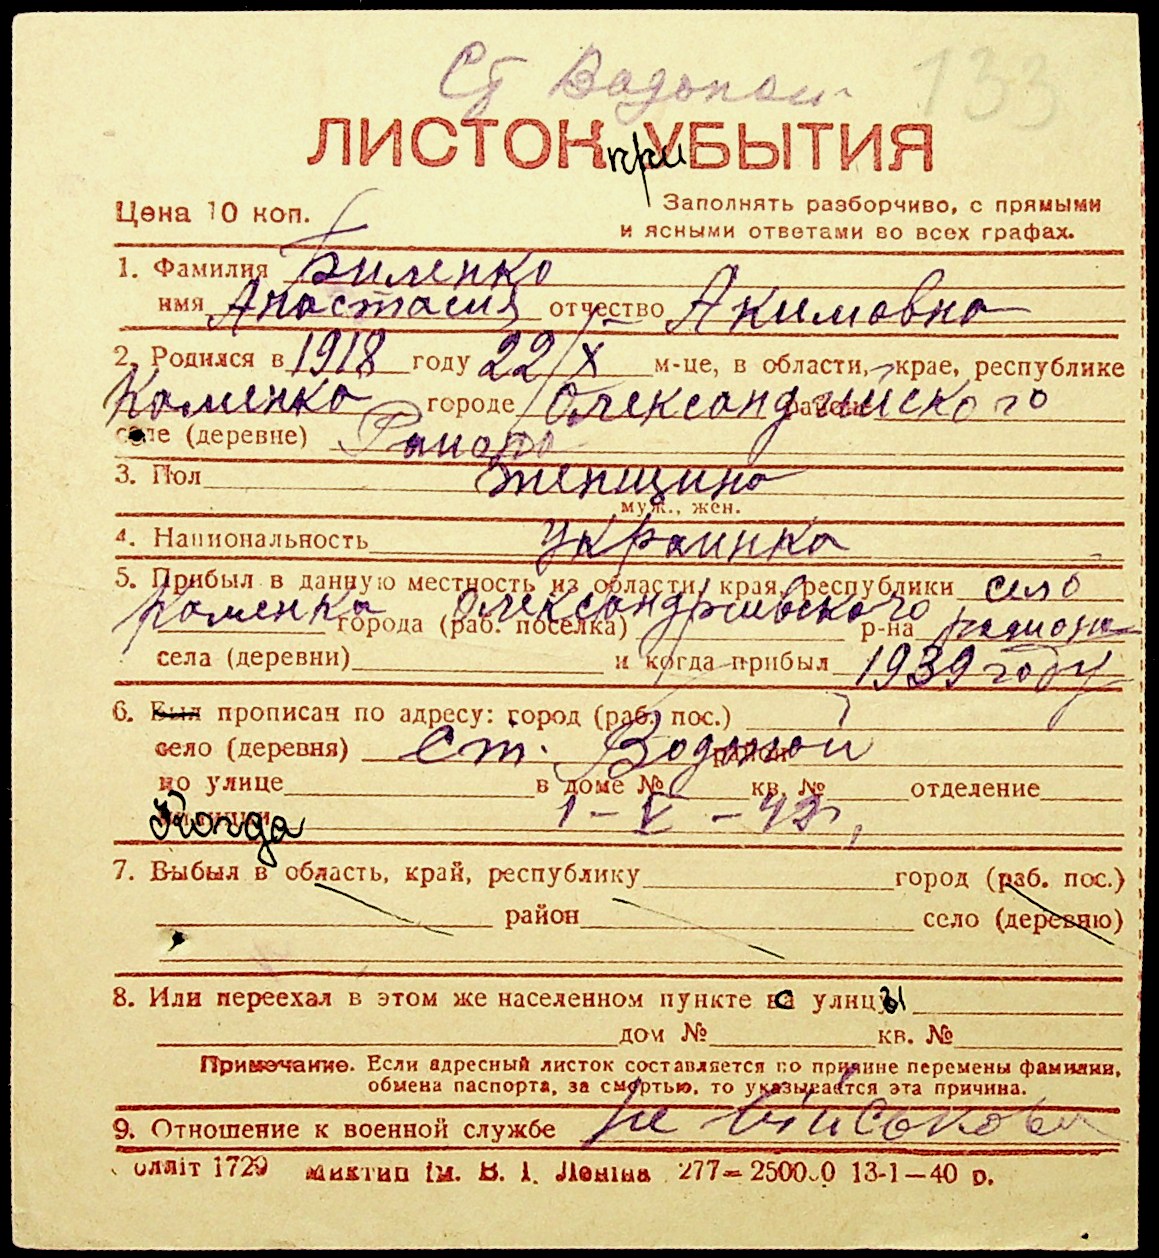 Ст Водопой
133
ЛИСТОК при УБЫТИЯ
Цена 10 коп.
Заполнять разборчиво, с прямыми
и ясными ответами во всех графах.
1. Фамилия Биленко
имя Анастасия отчество Акимовна
2. Родился в 1918 году 22/X м-це, в области, крае, республике
Каменка городе Олександрийского районе
селе (деревне) Району
3. Пол женщина
муж., жен.
4. Национальность украинка
5. Прибыл в данную местность из области, края, республики село
Каменка Олександриевского города (раб. поселка) р-на района
села (деревни) и когда прибыл 1939 году
6. Был прописан по адресу: город (раб. пос.)
село (деревня) ст. Водопой район
по улице в доме № кв. № отделение
милиции Когда 1-V-42г.
7. Выбыл в область, край, республику город (раб. пос.)
район село (деревню)
8. Или переехал в этом же населенном пункте с улицы
дом № кв. №
Примечание. Если адресный листок составляется по причине перемены фамилии,
обмена паспорта, за смертью, то указывается эта причина.
9. Отношение к военной службе Не військова
олліт 1729 Миктип Ім. В. І. Леніна 277—250000 13-1—40 р.